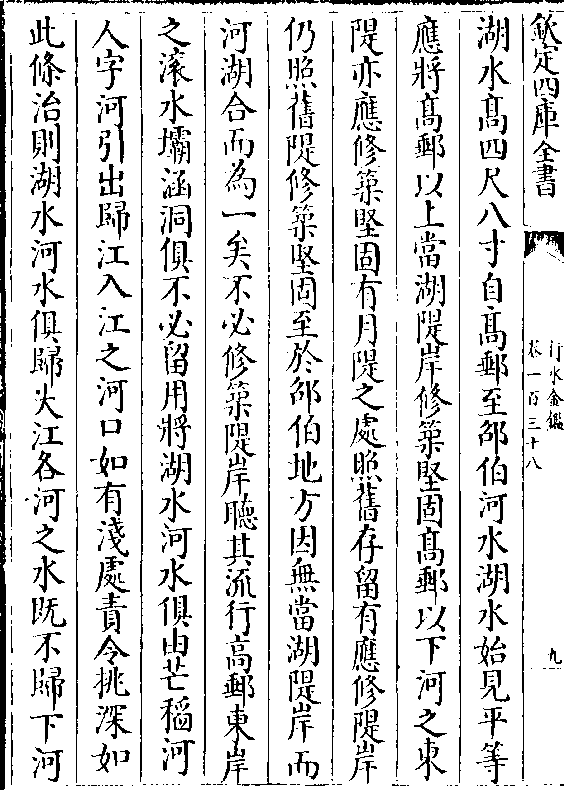 欽定四庫全書
行水金鑑
卷一百三十八
九
湖水髙四尺八寸自髙郵至邵伯河水湖水始見平等
應將髙郵以上當湖隄岸修築堅固髙郵以下河之東
隄亦應修築堅固有月隄之處照舊存留有應修隄岸
仍照舊隄修築堅固至於邵伯地方因無當湖隄岸而
河湖合而為一矣不必修築隄岸聽其流行高郵東岸
之滚水壩涵洞俱不必留用將湖水河水俱由芒稻河
人字河引出歸江入江之河口如有淺處責令挑深如
此條治則湖水河水俱歸大江各河之水既不歸下河